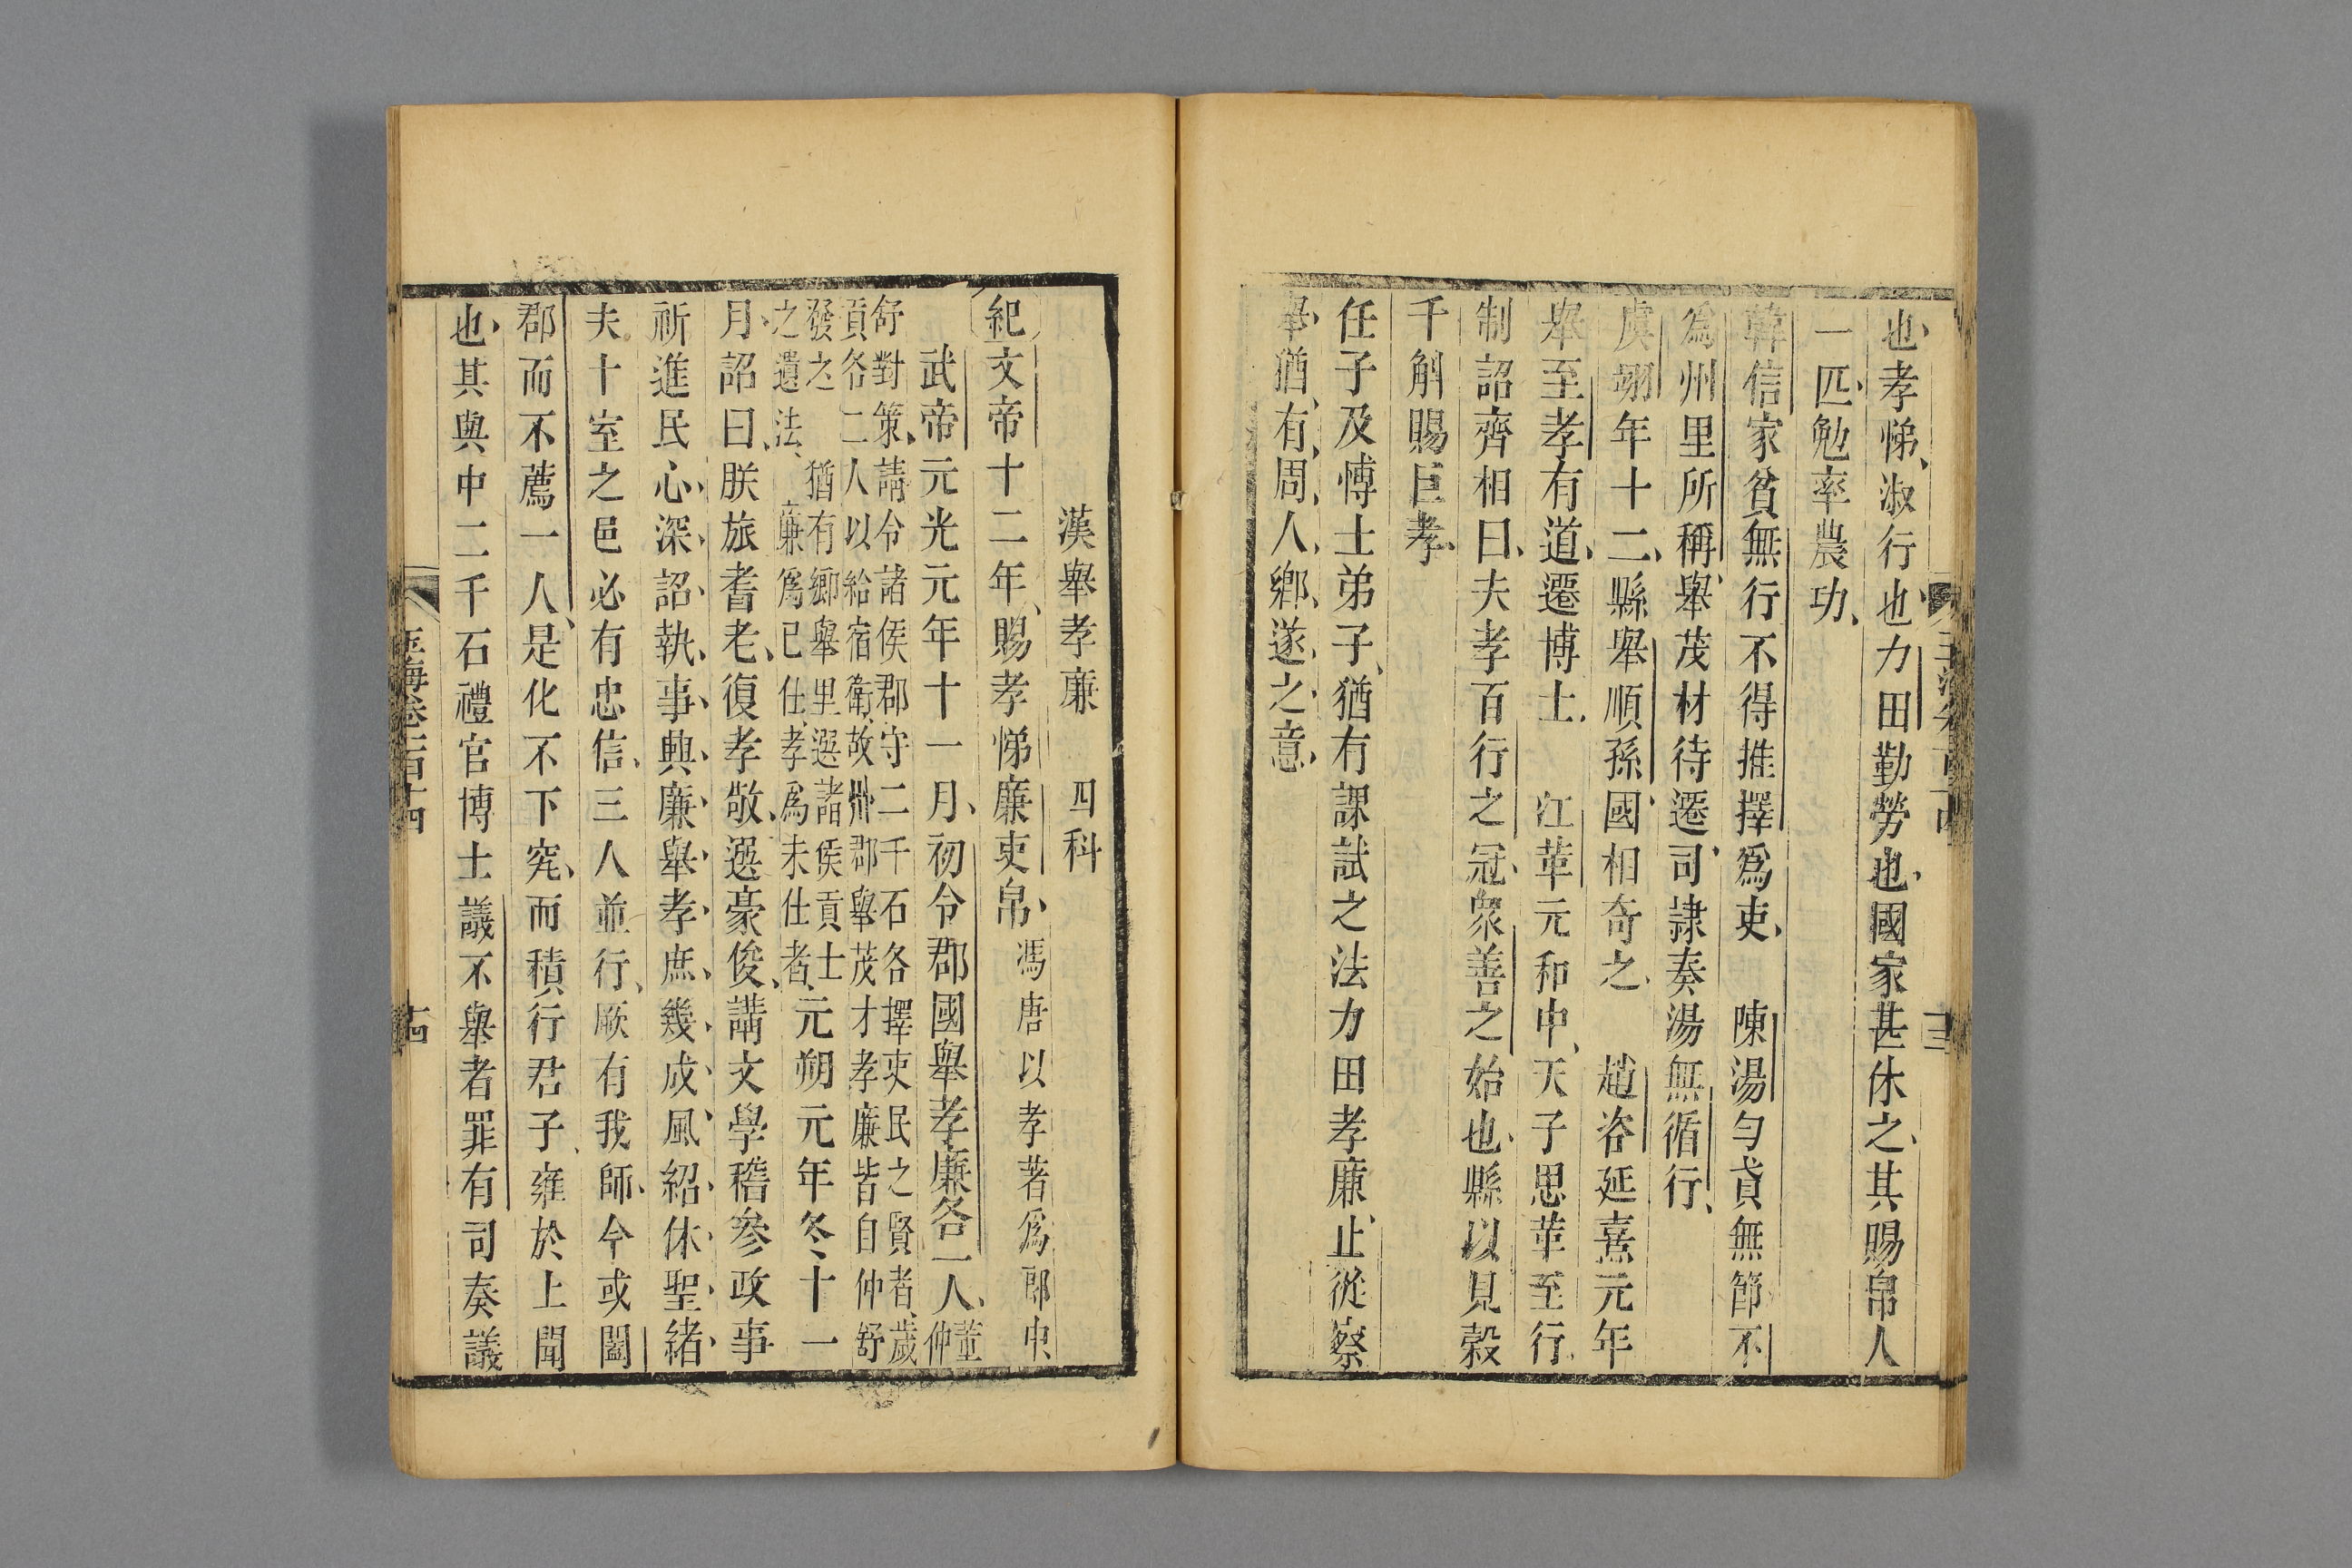 也孝悌淑行也力田勤勞也國家甚休之其賜帛人
一匹勉率農功
韓信家貧無行不得推擇爲吏　陳湯匄貣無節不
爲州里所稱舉茂材待遷司隷奏湯無循行
虞翊年十二縣舉順孫國相奇之　趙咨延熹元年
舉至孝有道遷博士　江革元和中天子思革至行
制詔齊相曰夫孝百行之冠衆善之始也縣以見穀
千斛賜巨孝
任子及博士弟子猶有課試之法力田孝廉止從察
舉猶有周人鄉遂之意
漢舉孝廉　四科
紀文帝十二年賜孝悌廉吏帛馮唐以孝著爲郎中
武帝元光元年十一月初令郡國舉孝廉各一人董仲
舒對策請令諸侯郡守二千石各擇吏民之賢者歲
貢各二人以給宿衛故州郡舉茂才孝廉皆自仲舒
發之　猶有鄉舉里選諸侯貢士
之遺法　廉爲已仕孝爲未仕者
元朔元年冬十一
月詔曰朕旅耆老復孝敬選豪俊講文學稽參政事
祈進民心深詔執事興廉舉孝庶幾成風紹休聖緒
夫十室之邑必有忠信三人並行厥有我師今或闔
郡而不薦一人是化不下究而積行君子雍於上聞
也其與中二千石禮官博士議不舉者罪有司奏議
玉海卷一百十四
十四